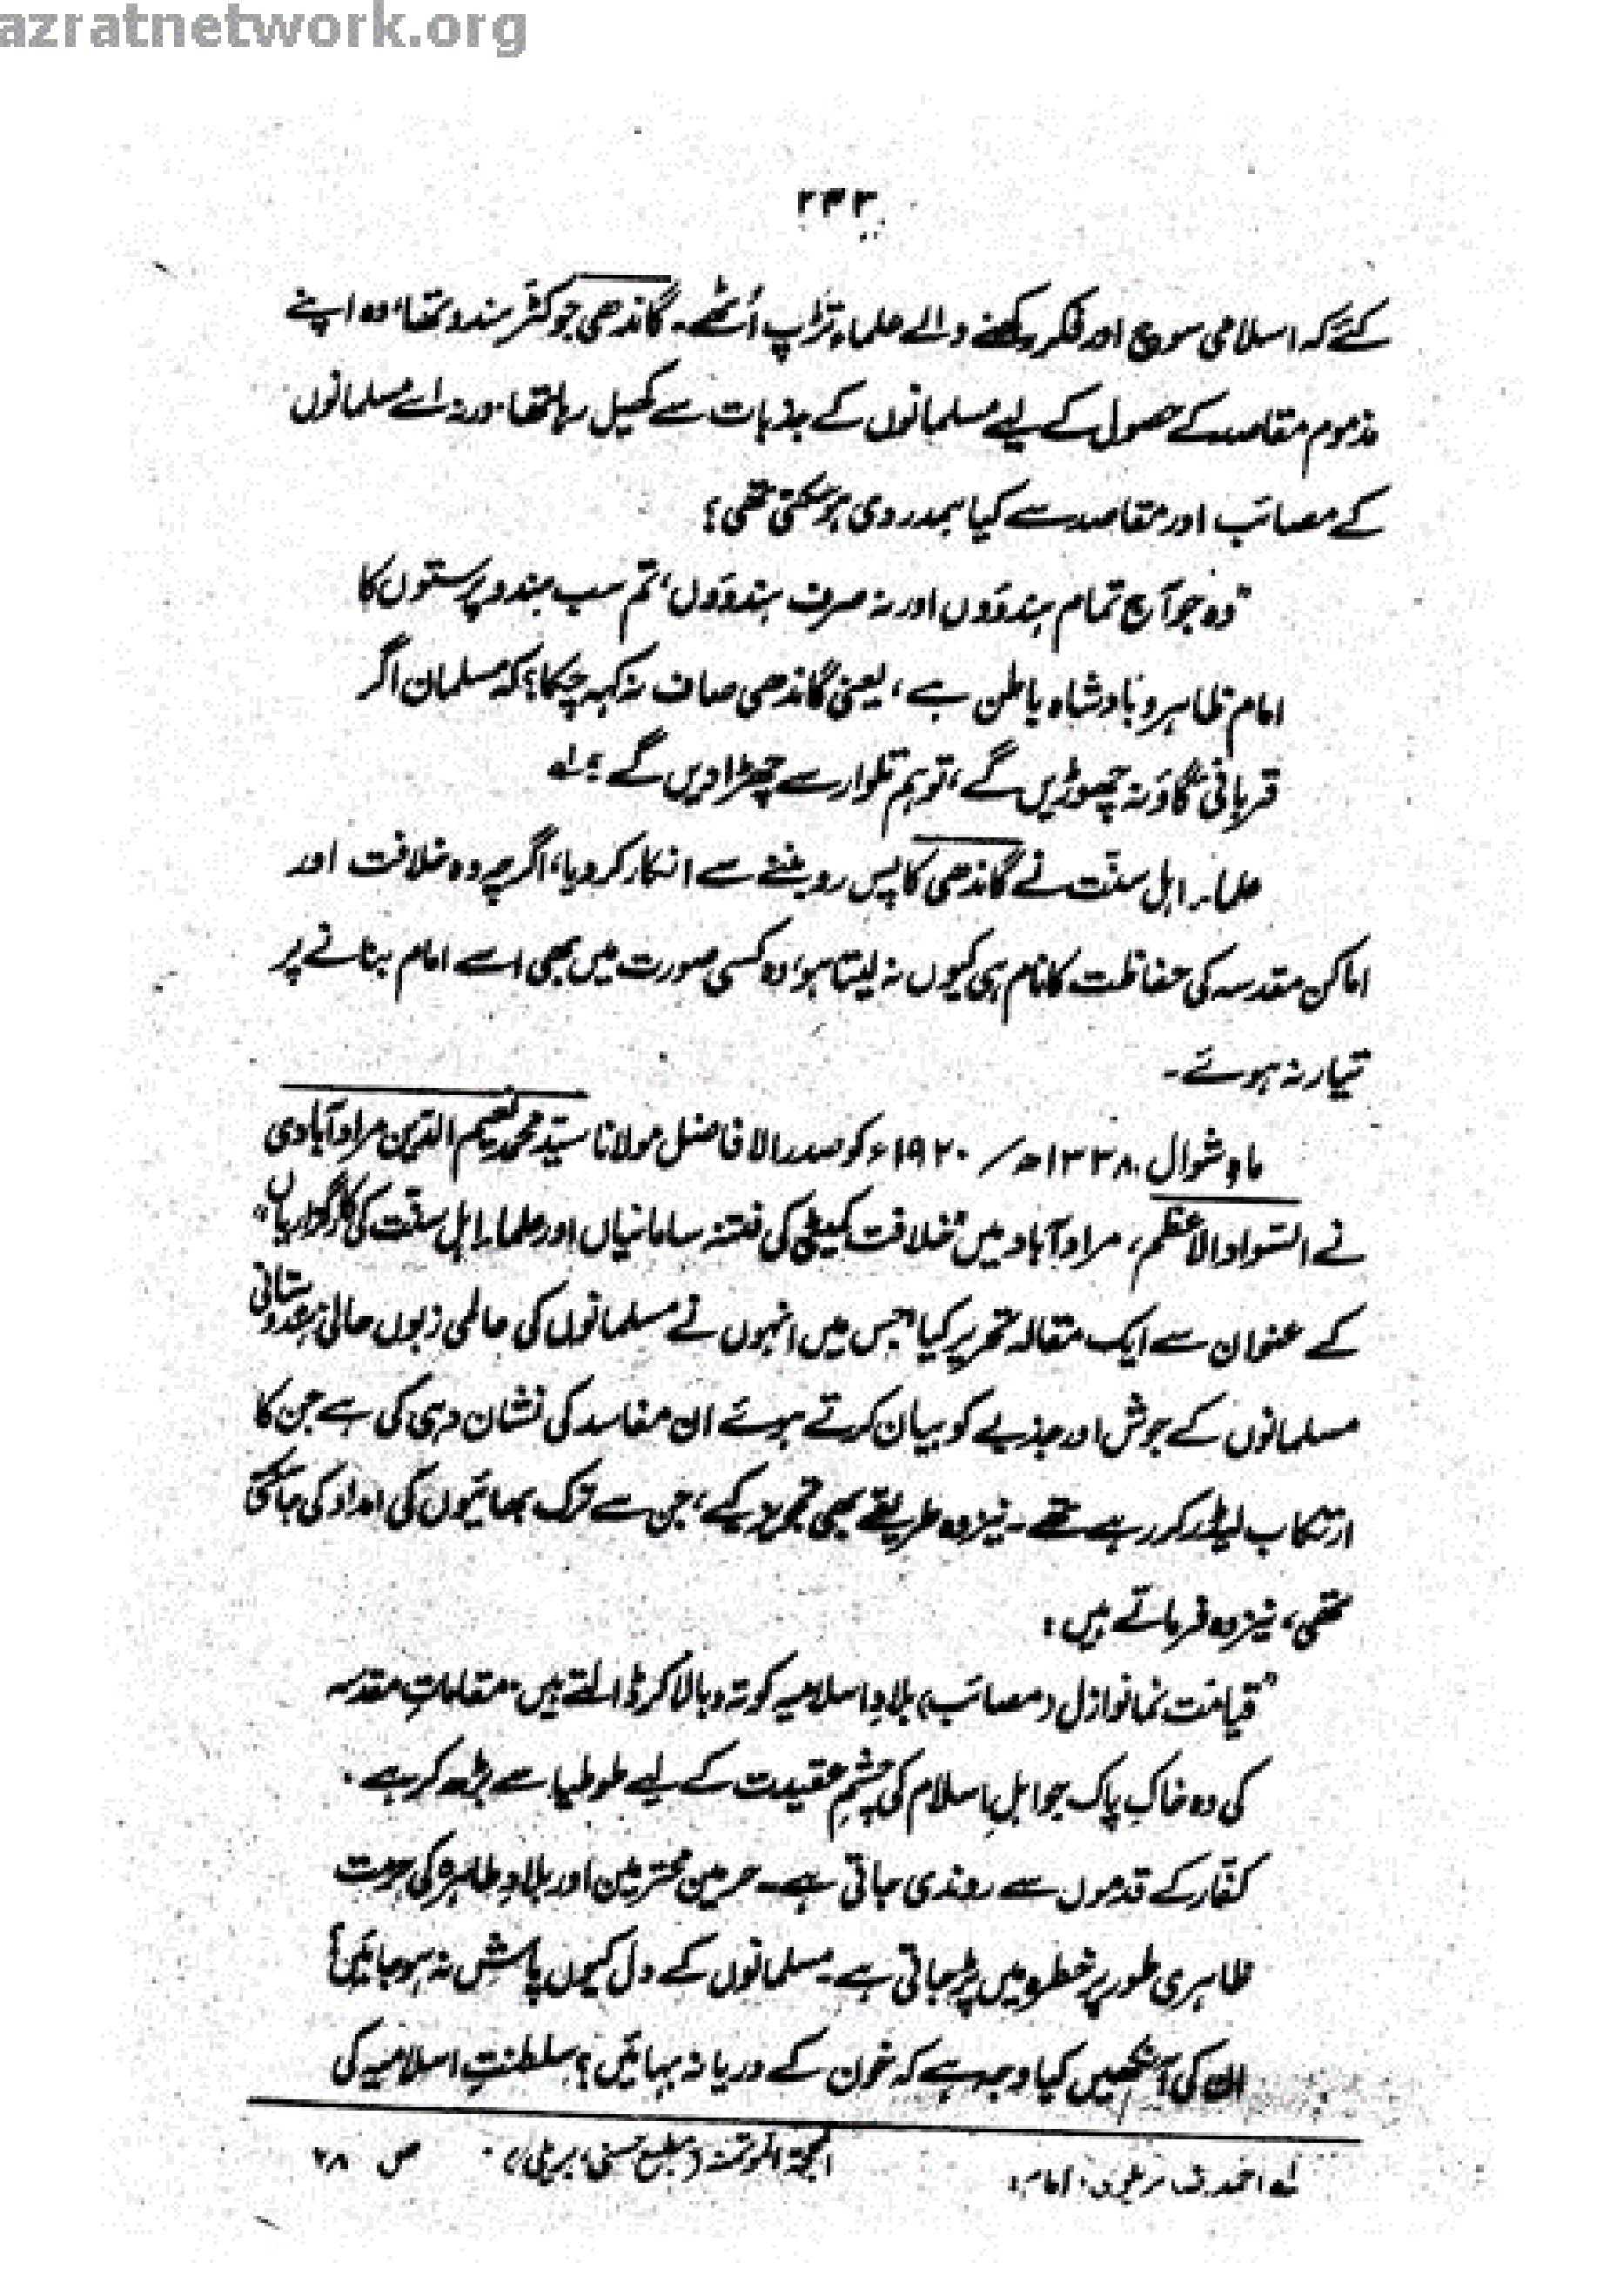 azratnetwork.org
۲۴۳
کئے کہ اسلامی سوچ اور فکر رکھنے والے علماء تڑپ اُٹھے۔ گاندھی جو کٹر ہندو تھا، وہ اپنے
مذموم مقاصد کے حصول کے لیے مسلمانوں کے جذبات سے کھیل رہا تھا، ورنہ اسے مسلمانوں
کے مصائب اور مقاصد سے کیا ہمدردی ہو سکتی تھی؟
"وہ جو آج تمام ہندوؤں اور نہ صرف ہندوؤں، تم سب ہندو پرستوں کا
امام ظاہر و بادشاہ باطن ہے، یعنی گاندھی صاف نہ کہہ چکا؟ کہ مسلمان اگر
قربانی گاؤ نہ چھوڑیں گے، تو ہم تلوار سے چھڑا دیں گے؟ لے
علماء اہل سنّت نے گاندھی کا پس رو بننے سے انکار کر دیا، اگرچہ وہ خلافت اور
اماکن مقدسہ کی حفاظت کا نام ہی کیوں نہ لیتا ہو، وہ کسی صورت میں بھی اسے امام بنانے پر
تیار نہ ہوئے۔
ماہ شوال ۱۳۳۸ھ/ ۱۹۲۰ء کو صدر الافاضل مولانا سیّد محمد نعیم الدین مراد آبادی
نے السّواد الاعظم، مراد آباد میں "خلافت کمیٹی کی فتنہ سامانیاں اور علماء اہل سنّت کی کارگزاریاں"
کے عنوان سے ایک مقالہ تحریر کیا، جس میں انہوں نے مسلمانوں کی عالمی زبوں حالی، ہندوستانی
مسلمانوں کے جوش اور جذبے کو بیان کرتے ہوئے ان مفاسد کی نشان دہی کی ہے جن کا
ارتکاب لیڈر کر رہے تھے۔ نیز وہ طریقے بھی تجویز کیے، جن سے ترک بھائیوں کی امداد کی جا سکتی
تھی، نیز وہ فرماتے ہیں:
"قیامت نما نوازل (مصائب) بلادِ اسلامیہ کو تہ و بالا کر ڈالتے ہیں۔ مقاماتِ مقدسہ
کی وہ خاکِ پاک جو اہلِ اسلام کی چشمِ عقیدت کے لیے طوطیا سے بڑھ کر ہے۔
کفّار کے قدموں سے روندی جاتی ہے۔ حرمین محترمین اور بلادِ طاہرہ کی حرمت
ظاہری طور پر خطرہ میں پڑ جاتی ہے۔ مسلمانوں کے دل کیوں پاش نہ ہو جائیں؟
ان کی آنکھیں کیا وجہ ہے کہ خون کے دریا نہ بہائیں؟ سلطنتِ اسلامیہ کی
لے احمد رضا بریلوی، امام: المحجۃ المؤتمنہ (مطبع حسنی، بریلی)، ص ۲۸